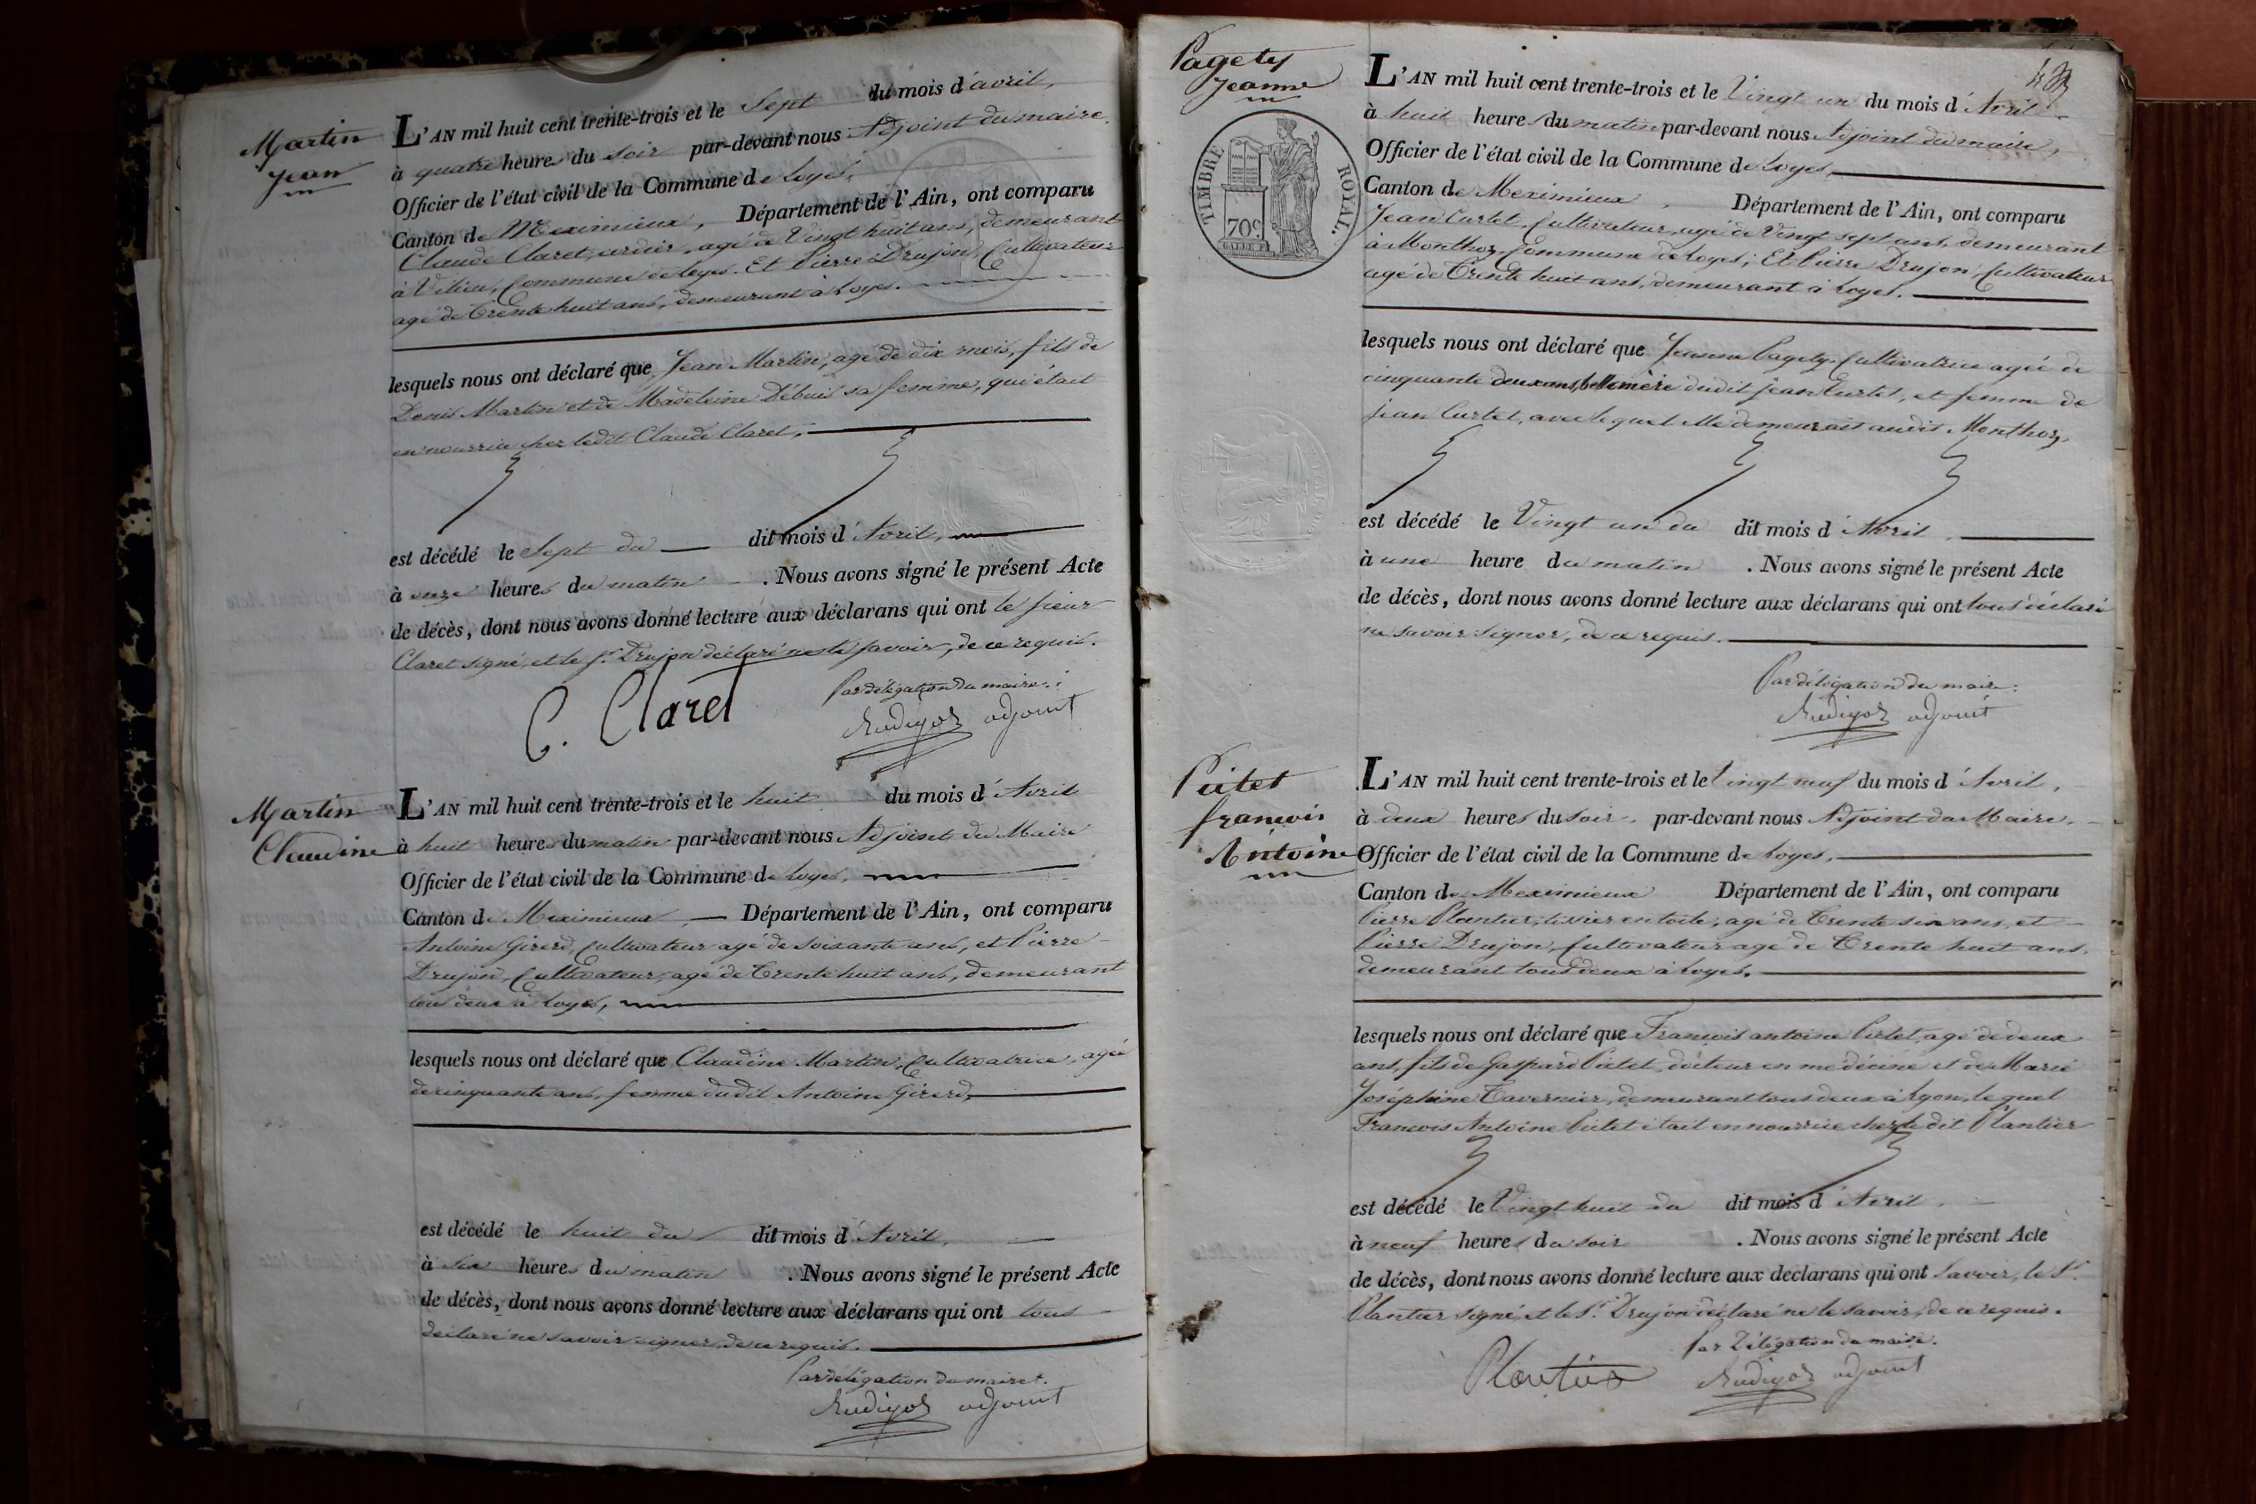 Martin
Jean
L'AN mil huit cent trente-trois et le Sept du mois d'avril,
à quatre heures du soir par-devant nous Adjoint du maire,
Officier de l'état civil de la Commune de Loyes,
Canton de Meximieux, Département de l'Ain, ont comparu
Claude Claret, agé de Vingt huit ans, demeurant
à Vilieu, Commune de Loyes. Et Pierre Drujon, Cultivateur
agé de Trente huit ans, demeurant a Loyes.
lesquels nous ont déclaré que Jean Martin, agé de dix mois, fils de
Denis Martin et de Madeleine Débuis sa femme, qui était
en nourrice chez ledit Claude Claret,
est décédé le Sept du dit mois d'Avril,
à onze heures du matin. Nous avons signé le présent Acte
de décès, dont nous avons donné lecture aux déclarans qui ont le sieur
Claret signé, et le Sr. Drujon déclaré ne le savoir, de ce requis.
Par délégation du maire:
C. Claret
adjoint
Martin
Claudine
L'AN mil huit cent trente-trois et le huit du mois d'Avril
à huit heures du matin par-devant nous Adjoint du Maire
Officier de l'état civil de la Commune de Loyes,
Canton de Meximieux, Département de l'Ain, ont comparu
Antoine Girerd, Cultivateur agé de soixante ans, et Pierre
Drujon, Cultivateur, agé de Trente huit ans, demeurant
tous deux à Loyes,
lesquels nous ont déclaré que Claudine Martin, Cultivatrice, agée
de cinquante ans, femme dudit Antoine Girerd,
est décédé le huit du dit mois d'Avril,
à six heures du matin. Nous avons signé le présent Acte
de décès, dont nous avons donné lecture aux déclarans qui ont tous
déclaré ne savoir signer, de ce requis.
Par délégation du maire.
adjoint
Pagety
Jeanne
TIMBRE ROYAL.
70c
L'AN mil huit cent trente-trois et le Vingt un du mois d'Avril
à huit heures du matin par-devant nous Adjoint du maire,
Officier de l'état civil de la Commune de Loyes,
Canton de Meximieux. Département de l'Ain, ont comparu
Jean Curtet, Cultivateur, agé de Vingt sept ans, demeurant
à Monthoz, Commune de Loyes; Et Pierre Drujon, Cultivateur
agé de Trente huit ans, demeurant à Loyes.
lesquels nous ont déclaré que Jeanne Pagety, Cultivatrice agée de
cinquante deux ans, bellemère dudit Jean Curtet, et femme de
Jean Curtet, avec lequel elle demeurait audit Monthoz,
est décédé le Vingt un du dit mois d'Avril,
à une heure du matin. Nous avons signé le présent Acte
de décès, dont nous avons donné lecture aux déclarans qui ont tous déclaré
ne savoir signer, de ce requis.
Par délégation du maire:
adjoint
Pietet
françois
Antoine
L'AN mil huit cent trente-trois et le Vingt neuf du mois d'Avril,
à deux heures du soir, par-devant nous Adjoint du Maire,
Officier de l'état civil de la Commune de Loyes,
Canton de Meximieux Département de l'Ain, ont comparu
Pierre Plantier, tissier en toile, agé de Trente six ans, et
Pierre Drujon, Cultivateur agé de Trente huit ans,
demeurant tous deux à Loyes,
lesquels nous ont déclaré que François antoine Pietet, agé de deux
ans, fils de Gaspard Pietet, docteur en medécine et de Marie
Joséphine Tavernier, demeurant tous deux à Lyon, lequel
François Antoine Pietet était en nourrice chez le dit Plantier
est décédé le Vingt huit du dit mois d'Avril,
à neuf heures du soir. Nous avons signé le présent Acte
de décès, dont nous avons donné lecture aux declarans qui ont savoir, le Sr.
Plantier signé, et le Sr. Drujon déclaré ne le savoir, de ce requis.
Par Délégation du maire.
Plantier
adjoint